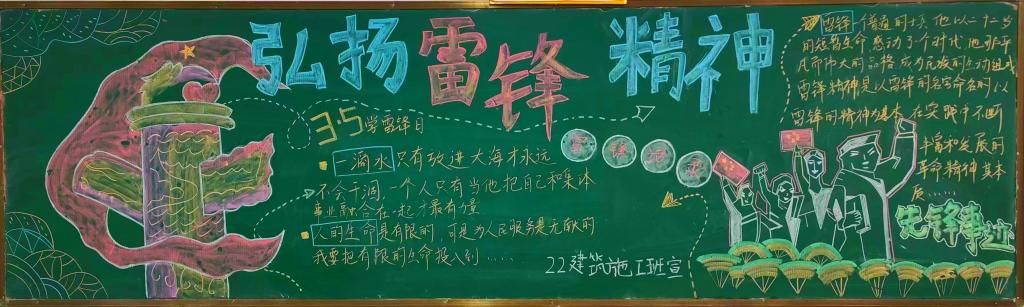 弘扬雷锋精神
3·5学雷锋日
一滴水只有放进大海才永远
不会干涸一个人只有当他把自己和集体
事业融合在一起才最有力量
人的生命是有限的,可是为人民服务是无限的
我要把有限的生命投入到……
22建筑施工班宣
雷锋一个普通的士兵他以二十二岁
的短暂生命感动了个时代他那平
雷锋精神是以雷锋的名字命名的以
雷锋的精神为基本在实践中不断
丰富和发展的
革命精神其本
质……
先锋事迹